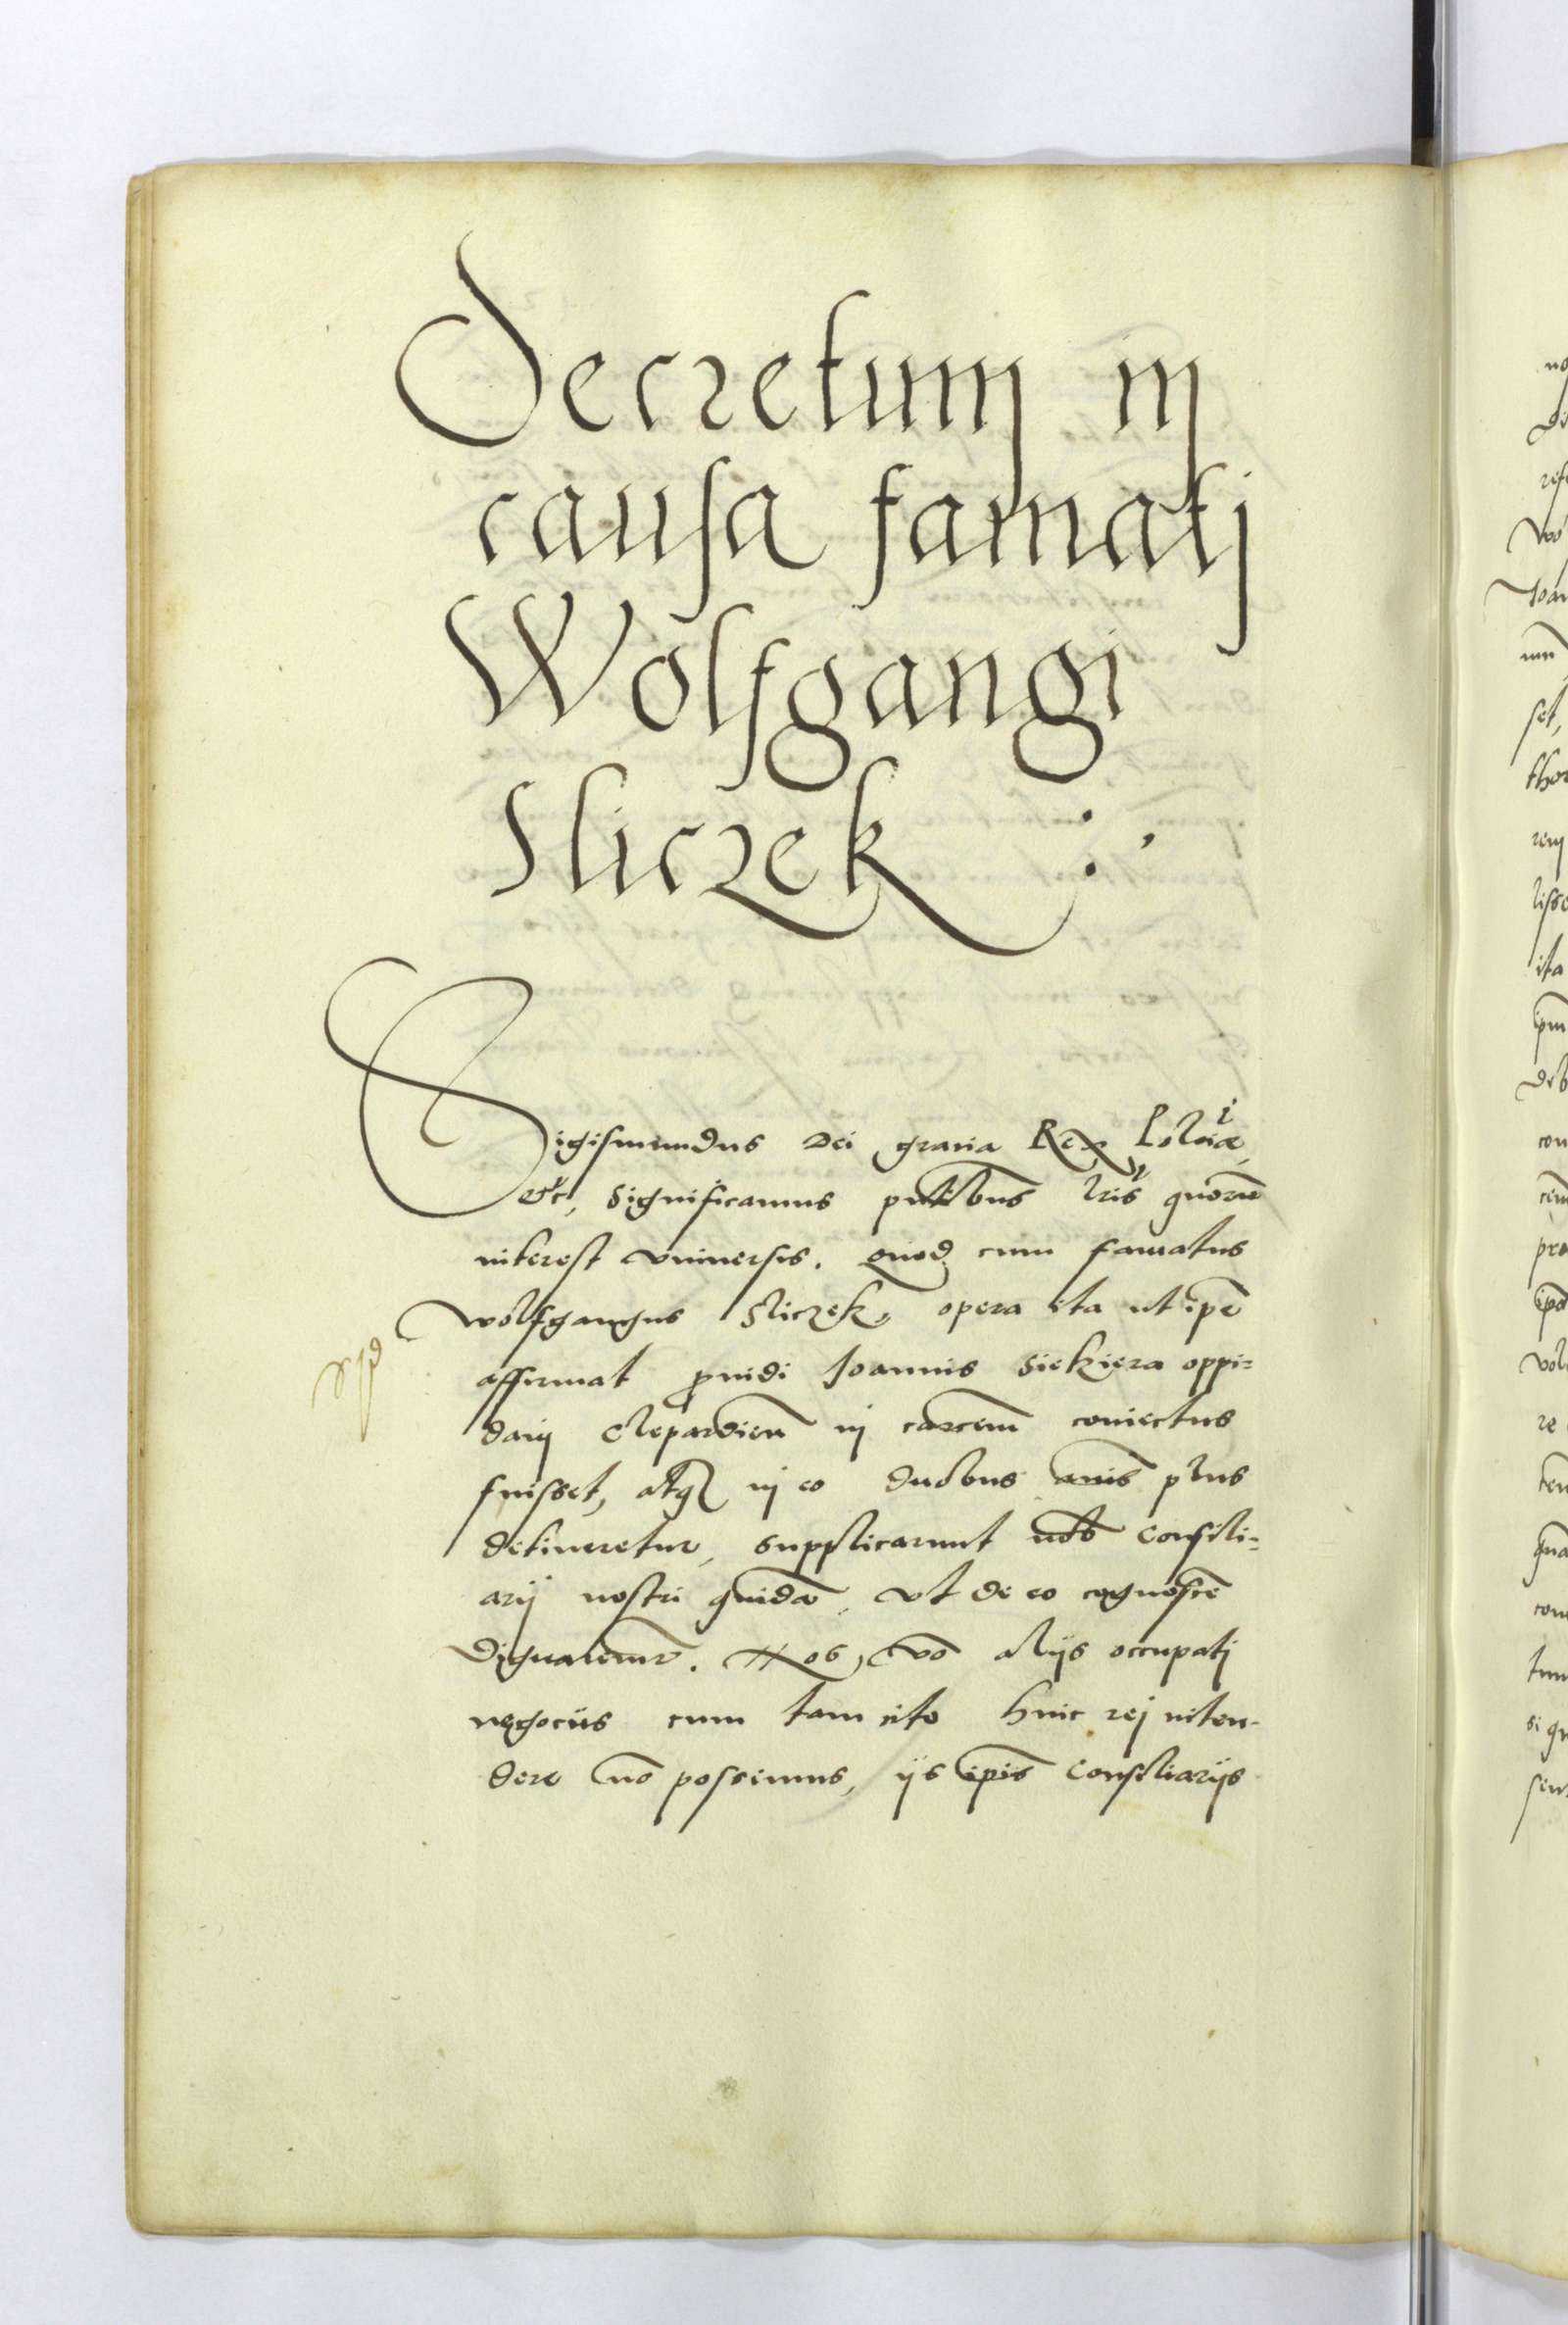 Decretum in
causa famatj
Wolfgangi
Sliczek :,
Sigismundus Dei gratia Rex Poloniæ
etc, Significamus pñtibus lris quorũ
interest vniuersis. Quod cum famatus
Wolfgangus Sliczek, opera ita ut ipẽ
affirmat ꝓuidi Joannis Siekiera oppi=
danj Clepardieñ in carcerẽ coniectus
fuisset, atqꝫ in eo duobus anis plus
detineretur, supplicarunt nobis Consili=
arij nostri quidã, vt de eo cognoscẽ
dignaremur. Nos, vo alijs occupatj
negocijs cum tam cito huic rej inten-
dere nõ possemus, ijs ipis Consiliarijs